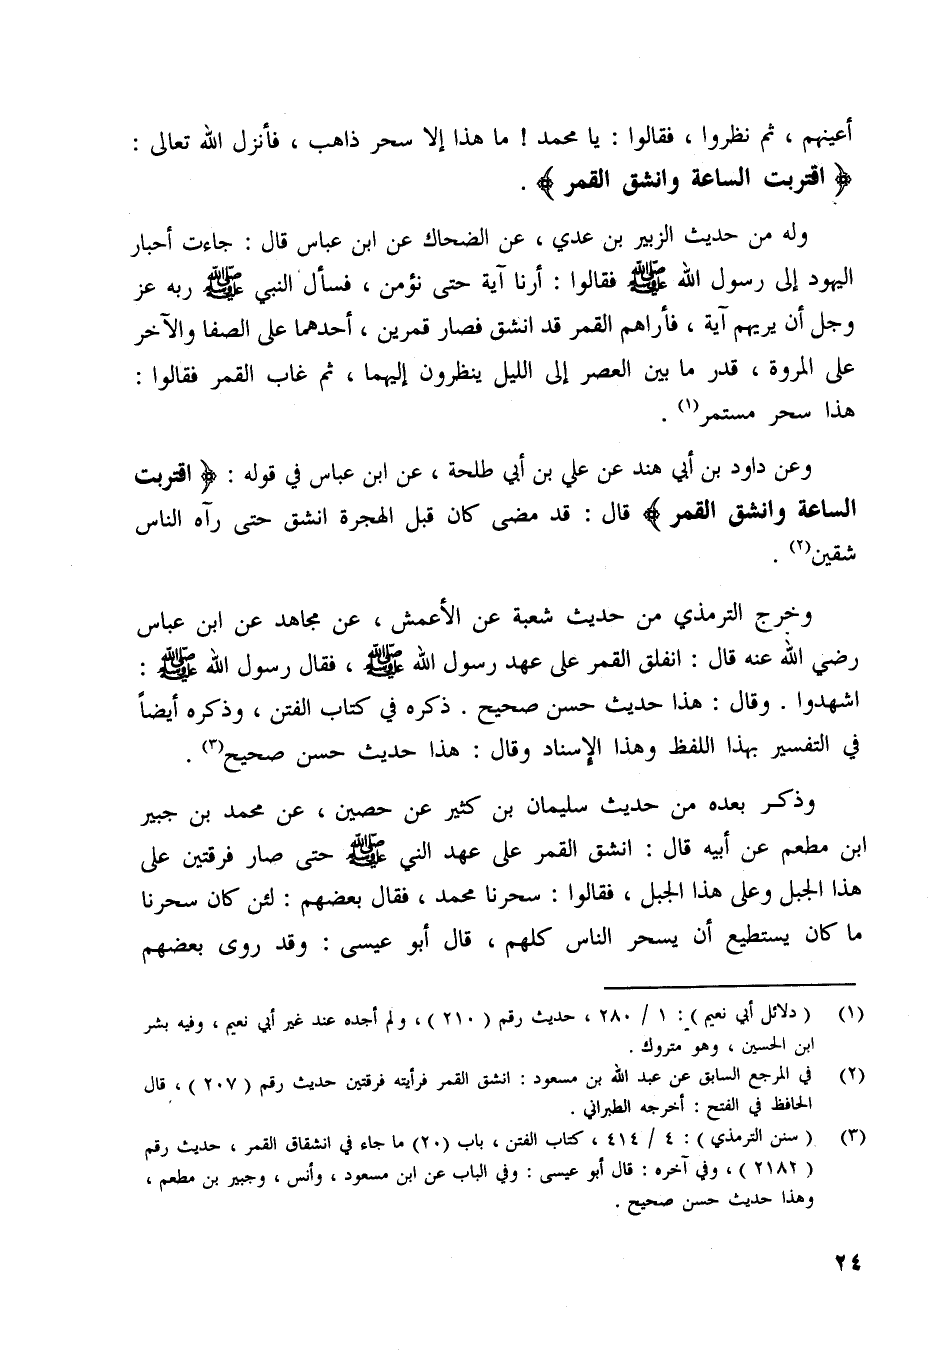 أعينهم ، ثم نظروا ، فقالوا : يا محمد ! ما هذا إلا سحر ذاهب ، فأنزل الله تعالى :
﴿ اقتربت الساعة وانشق القمر ﴾ .
وله من حديث الزبير بن عدي ، عن الضحاك عن ابن عباس قال : جاءت أحبار
اليهود إلى رسول الله ﷺ فقالوا : أرنا آية حتى نؤمن ، فسأل النبي ﷺ ربه عز
وجل أن يريهم آية ، فأراهم القمر قد انشق فصار قمرين ، أحدهما على الصفا والآخر
على المروة ، قدر ما بين العصر إلى الليل ينظرون إليهما ، ثم غاب القمر فقالوا :
هذا سحر مستمر(١) .
وعن داود بن أبي هند عن علي بن أبي طلحة ، عن ابن عباس في قوله : ﴿ اقتربت
الساعة وانشق القمر ﴾ قال : قد مضى كان قبل الهجرة انشق حتى رآه الناس
شقين(٢) .
وخرج الترمذي من حديث شعبة عن الأعمش ، عن مجاهد عن ابن عباس
رضي الله عنه قال : انفلق القمر على عهد رسول الله ﷺ ، فقال رسول الله ﷺ :
اشهدوا . وقال : هذا حديث حسن صحيح . ذكره في كتاب الفتن ، وذكره أيضاً
في التفسير بهذا اللفظ وهذا الإسناد وقال : هذا حديث حسن صحيح(٣) .
وذكر بعده من حديث سليمان بن كثير عن حصين ، عن محمد بن جبير
ابن مطعم عن أبيه قال : انشق القمر على عهد الني ﷺ حتى صار فرقتين على
هذا الجبل وعلى هذا الجبل ، فقالوا : سحرنا محمد ، فقال بعضهم : لئن كان سحرنا
ما كان يستطيع أن يسحر الناس كلهم ، قال أبو عيسى : وقد روى بعضهم
(١) ( دلائل أبي نعيم ) : ١ / ٢٨٠ ، حديث رقم ( ٢١٠ ) ، ولم أجده عند غير أبي نعيم ، وفيه بشر
ابن الحسين ، وهو متروك .
(٢) في المرجع السابق عن عبد الله بن مسعود : انشق القمر فرأيته فرقتين حديث رقم ( ٢٠٧ ) ، قال
الحافظ في الفتح : أخرجه الطبراني .
(٣) ( سنن الترمذي ) : ٤ / ٤١٤ ، كتاب الفتن ، باب (٢٠) ما جاء في انشقاق القمر ، حديث رقم
( ٢١٨٢ ) ، وفي آخره : قال أبو عيسى : وفي الباب عن ابن مسعود ، وأنس ، وجبير بن مطعم ،
وهذا حديث حسن صحيح .
٢٤